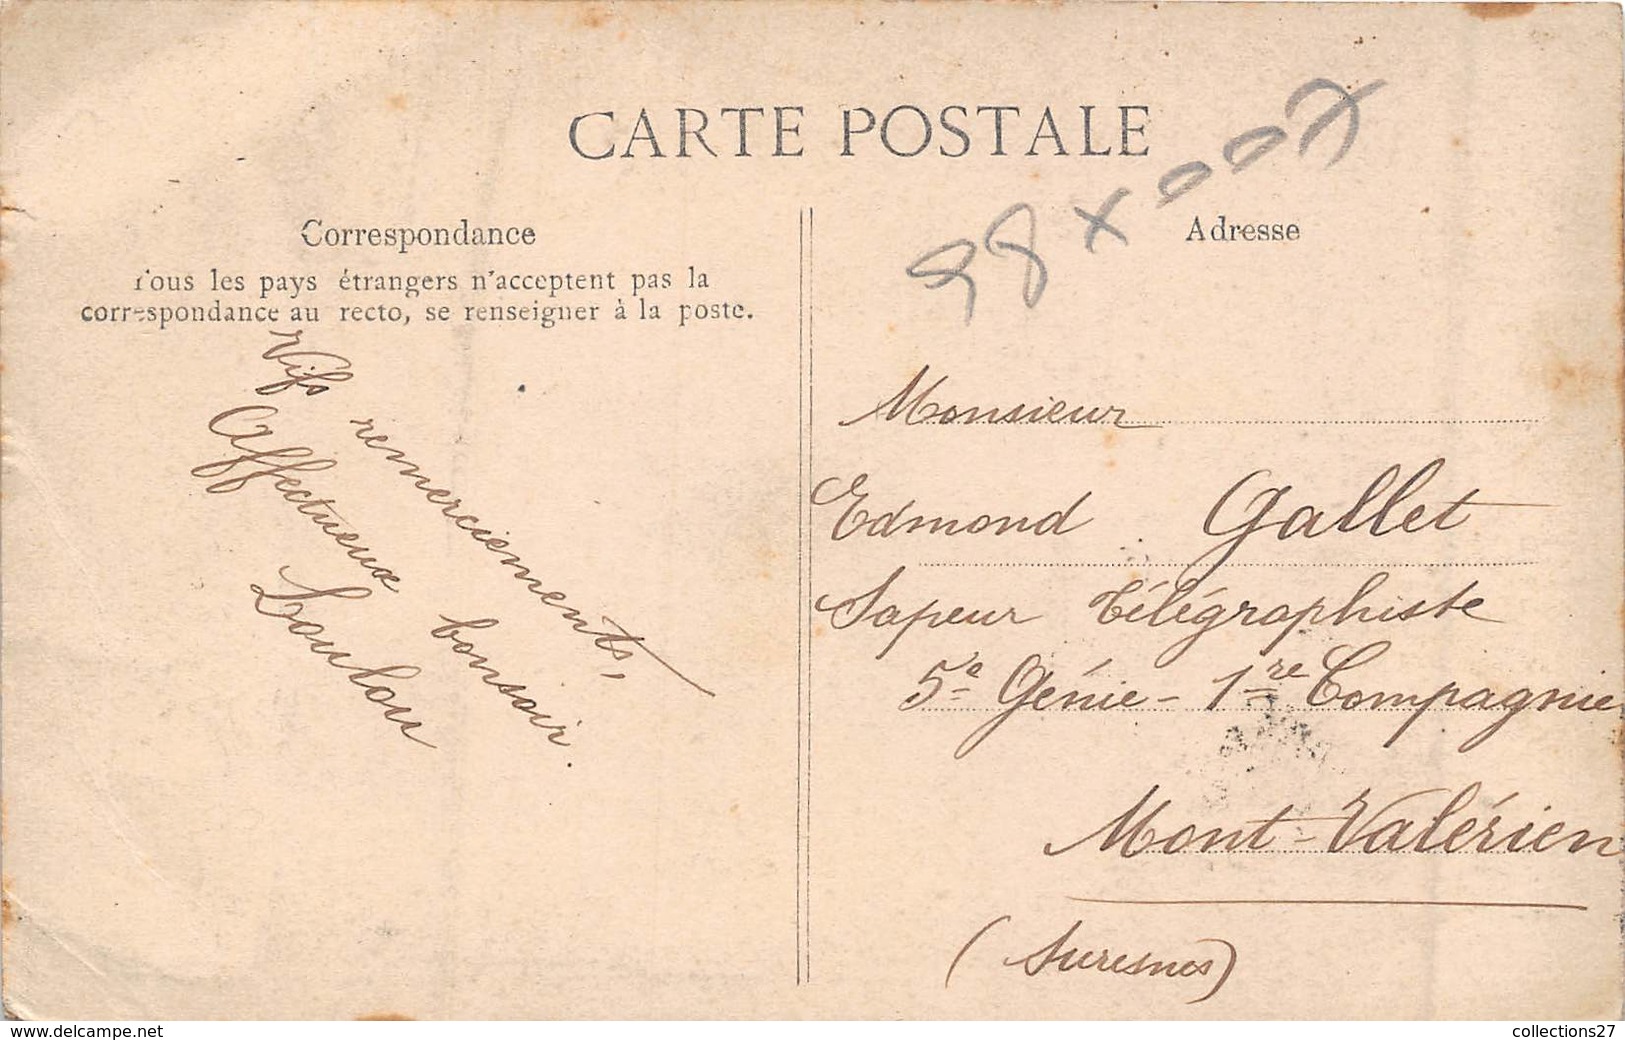 CARTE POSTALE
Correspondance
Tous les pays étrangers n'acceptent pas la
correspondance au recto, se renseigner à la poste.
Vifs remerciements,
Affectueux bonsoir.
Loulou
Adresse
Monsieur
Edmond Gallet
Sapeur Télégraphiste
5e Génie - 1re Compagnie
Mont-Valérien
(Suresnes)
www.delcampe.net
collections27